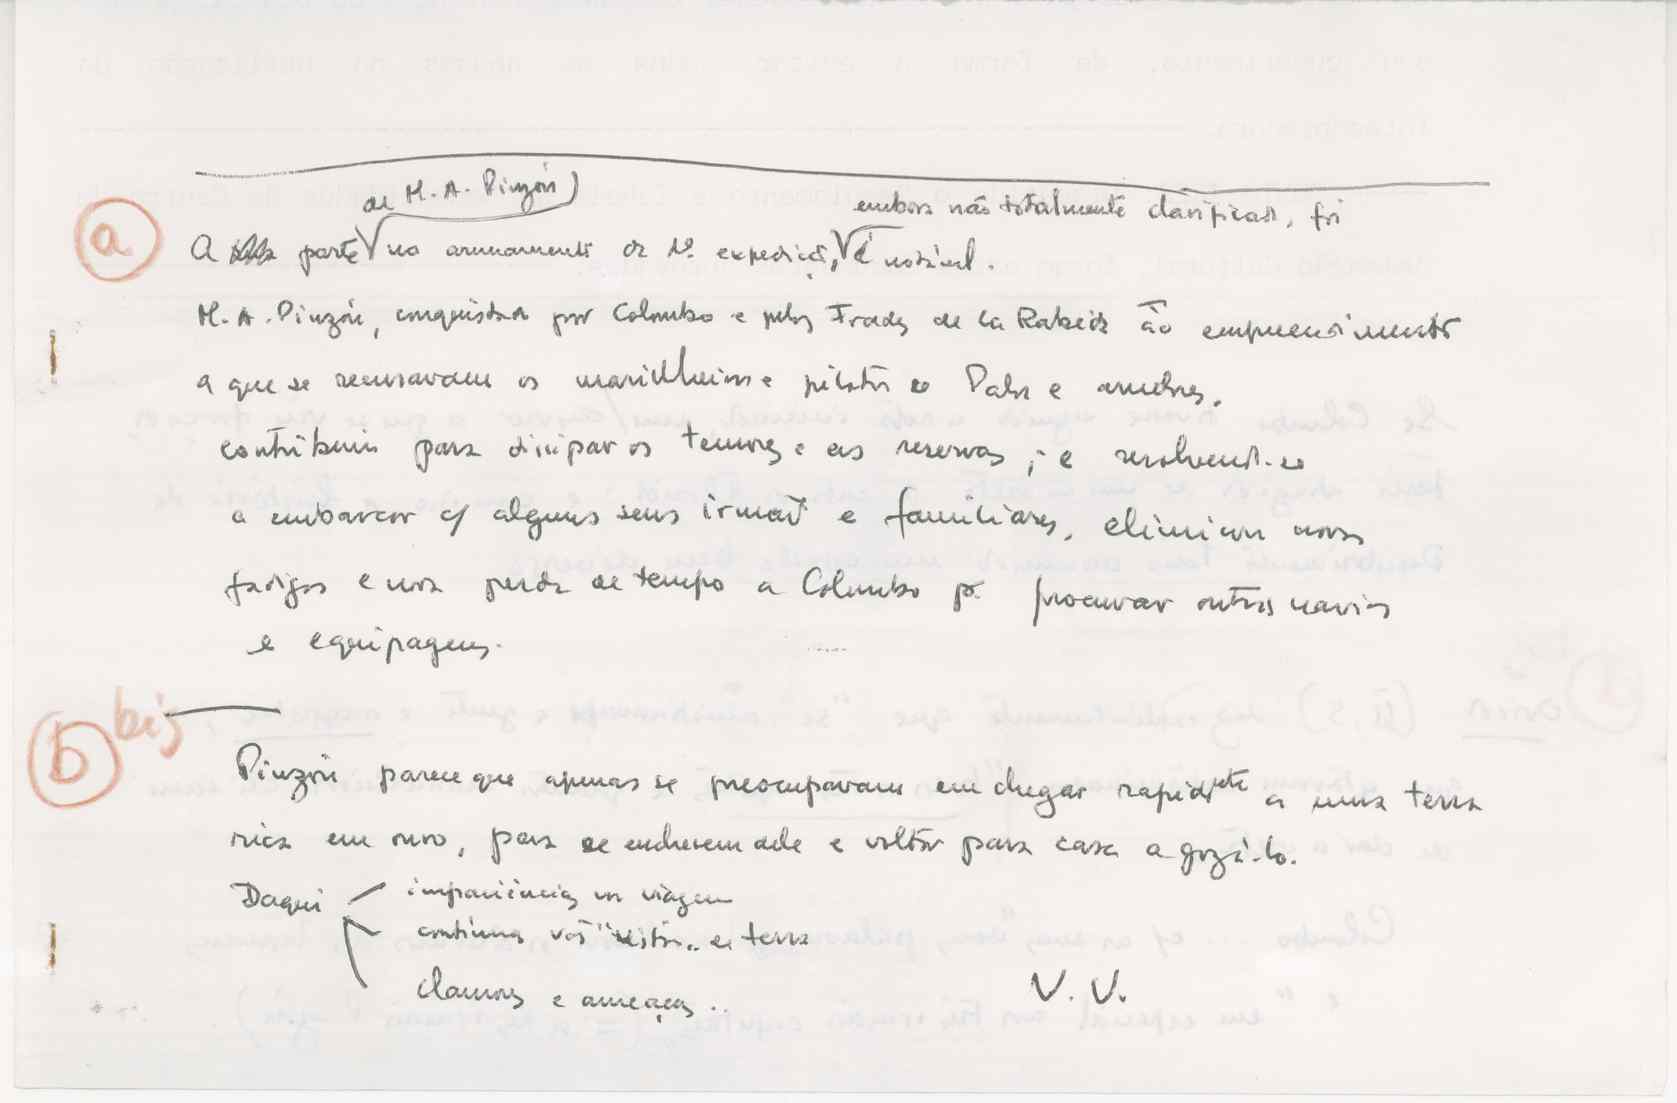 de M. A. Pinzón
embora não totalmente clarificada, foi
a A parte no armamento da 1ª expedição, é notável.
M. A. Pinzón, conquistado por Colombo e pelos Frades de la Rabida ao empreendimento
a que se recusavam os marinheiros e pilotos de Palos e arredores,
contribuiu para dissipar os temores e as reservas; e resolvendo-se
a embarcar c/ alguns seus irmãos e familiares, eliminou novas
fadigas e nova perda de tempo a Colombo pª procurar outros navios
e equipagens.
b bis
Pinzón parece que apenas se preocupavam em chegar rapidmte a uma terra
rica em ouro, para se encherem dele e voltar para casa a gozá-lo.
Daqui
impaciências na viagem
contínuas de terra
clamores e ameaças..
V. V.